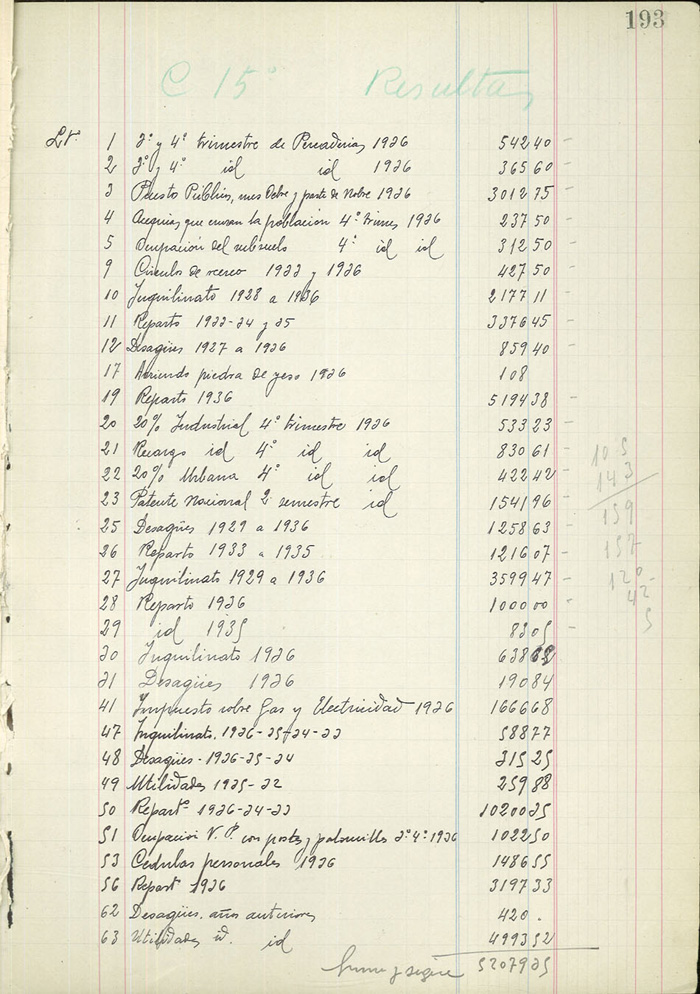 193
C 15º Resultas
Lº 1 3º y 4º trimestre de Pescaderias 1936 542 40 -
2 3º y 4º id id 1936 365 60 -
3 Puesto Públicos, mes Octbre y parte de Nobre 1936 3012 75 -
4 Acequias que cruzan la población 4º trimes 1936 237 50 -
5 Ocupación del subsuelo 4º id id 312 50 -
9 Circulos de recreo 1933 y 1936 427 50 -
10 Inquilinato 1928 a 1936 2177 11 -
11 Reparto 1933-34 y 35 3376 45 -
12 Desagües 1927 a 1936 859 40 -
17 Arriendo piedra de yeso 1936 108 -
19 Reparto 1936 5194 38 -
20 20% Industrial 4º trimestre 1936 533 23 -
21 Recargo id 4º id id 830 61 -
22 20% Urbana 4º id id 422 42 -
23 Patente Nacional 2 semestre id 1541 96 -
25 Desagües 1929 a 1936 1258 63 -
26 Reparto 1933 a 1935 1216 07 -
27 Inquilinato 1929 a 1936 3599 47 -
28 Reparto 1936 1000 00 -
29 id 1935 83 05 -
30 Inquilinato 1936 638
31 Desagües 1936 190 84
41 Impuesto sobre Gas y Electricidad 1936 1666 68
47 Inquilinato. 1936-35-34-33 588 77
48 Desagües - 1936-35-34 315 25
49 Utilidades 1935-32 259 88
50 Repartº 1936-34-33 10200 35
51 Ocupacion V. P. con postes y palomillas 3º 4º 1936 1022 50
53 Cedulas personales 1936 1486 55
56 Repart 1936 3197 33
62 Desagües. años anteriores 420 .
63 Utilidades id. id 4993 52
Suma y sigue 52079 35
105
143
159
157
120
42
5